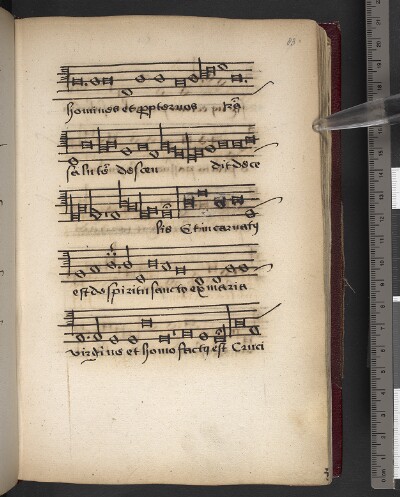 83
homines et propter nos nr̄ā
salutē descen dit de ce
lis Et incarnatꝯ
est de spiritu sancto ex maria
virgine et homo factꝯ est Cruci